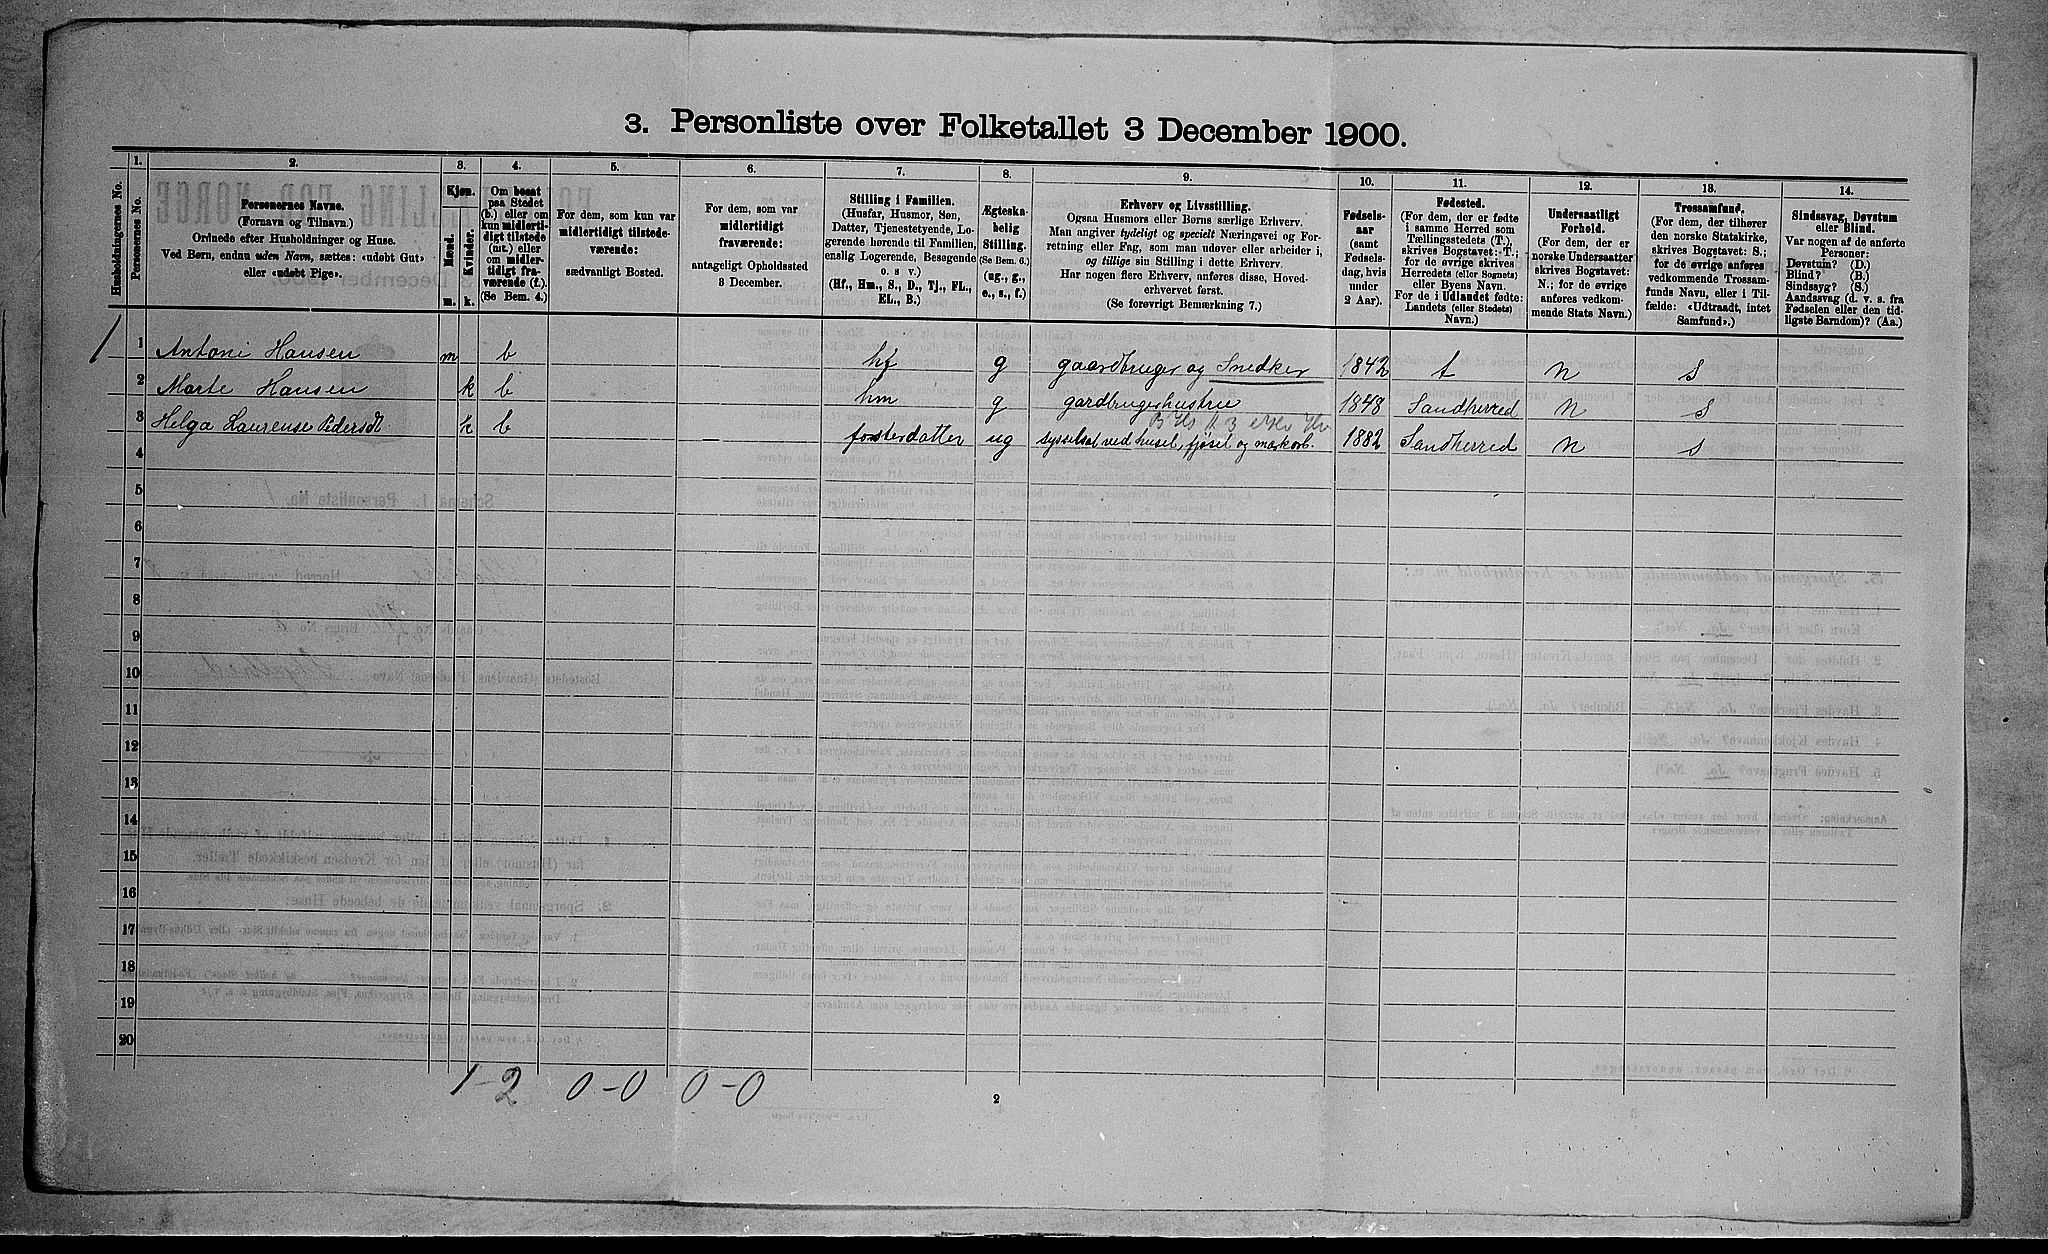 3. Personliste over Folketallet 3 December 1900.
1. 2. 3. 4. 5. 6. 7. 8. 9. 10. 11. 12. 13. 14.
Husholdningernes No.
Personernes No.
Personernes Navne.
(Fornavn og Tilnavn.)
Ordnede efter Husholdninger og Huse.
Ved Børn, endnu uden Navn, sættes: «udøbt Gut»
eller «udøbt Pige».
Kjøn.
Mænd.
Kvinder.
m. k.
Om bosat
paa Stedet
(b.) eller om
kun midlerti-
digt tilstede
(mt.) eller
om midler-
tidigt fra-
værende (f.).
(Se Bem. 4.)
For dem, som kun var
midlertidigt tilstede-
værende:
sædvanligt Bosted.
For dem, som var
midlertidigt
fraværende:
antageligt Opholdssted
3 December.
Stilling i Familien.
(Husfar, Husmor, Søn,
Datter, Tjenestetyende, Lo-
gerende hørende til Familien,
enslig Logerende, Besøgende
o. s. v.)
(Hf., Hm., S., D., Tj., FL.,
EL., B.)
Ægteska-
belig
Stilling.
(Se Bem. 6.)
(ug., g.,
e., s., f.)
Erhverv og Livsstilling.
Ogsaa Husmors eller Børns særlige Erhverv.
Man angiver tydeligt og specielt Næringsvei og For-
retning eller Fag, som man udøver eller arbeider i,
og tillige sin Stilling i dette Erhverv.
Har nogen flere Erhverv, anføres disse, Hoved-
erhvervet først.
(Se forøvrigt Bemærkning 7.)
Fødsels-
aar
(samt
Fødsels-
dag, hvis
under
2 Aar).
Fødested.
(For dem, der er fødte
i samme Herred som
Tællingsstedets (T.),
skrives Bogstavet: T.;
for de øvrige skrives
Herredets (eller Sognets)
eller Byens Navn.
For de i Udlandet fødte:
Landets (eller Stedets)
Navn.)
Undersaatligt
Forhold.
(For dem, der er
norske Undersaatter
skrives Bogstavet:
N.; for de øvrige
anføres vedkom-
mende Stats Navn.)
Trossamfund.
(For dem, der tilhører
den norske Statskirke,
skrives Bogstavet: S.;
for de øvrige anføres
vedkommende Trossam-
funds Navn, eller i Til-
fælde: «Udtraadt, intet
Samfund».)
Sindssvag, Døvstum
eller Blind.
Var nogen af de anførte
Personer:
Døvstum? (D.)
Blind? (B.)
Sindssyg? (S.)
Aandssvag (d. v. s. fra
Fødselen eller den tid-
ligste Barndom)? (Aa.)
1 1 Antoni Hansen m b hf g gaardbruger og Snedker 1842 t N S
2 Marte Hansen k b hm g gardbrugerhustrue 1848 Sandherred N S
3 Helga Laurense Pedersdt k b fosterdatter ug sysselsat ved husel, fjøsel og markarb. 1882 Sandherred N S
4
5
6
7
8
9
10
11
12
13
14
15
16
17
18
19
20
1-2 0-0 0-0
2